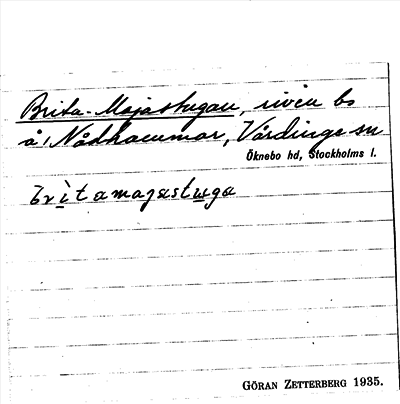 Brita-Majastugan, riven bs
å, Nådhammar, Vårdinge sn
Öknebo hd, Stockholms l.
brìtamajastuga
GÖRAN ZETTERBERG 1935.